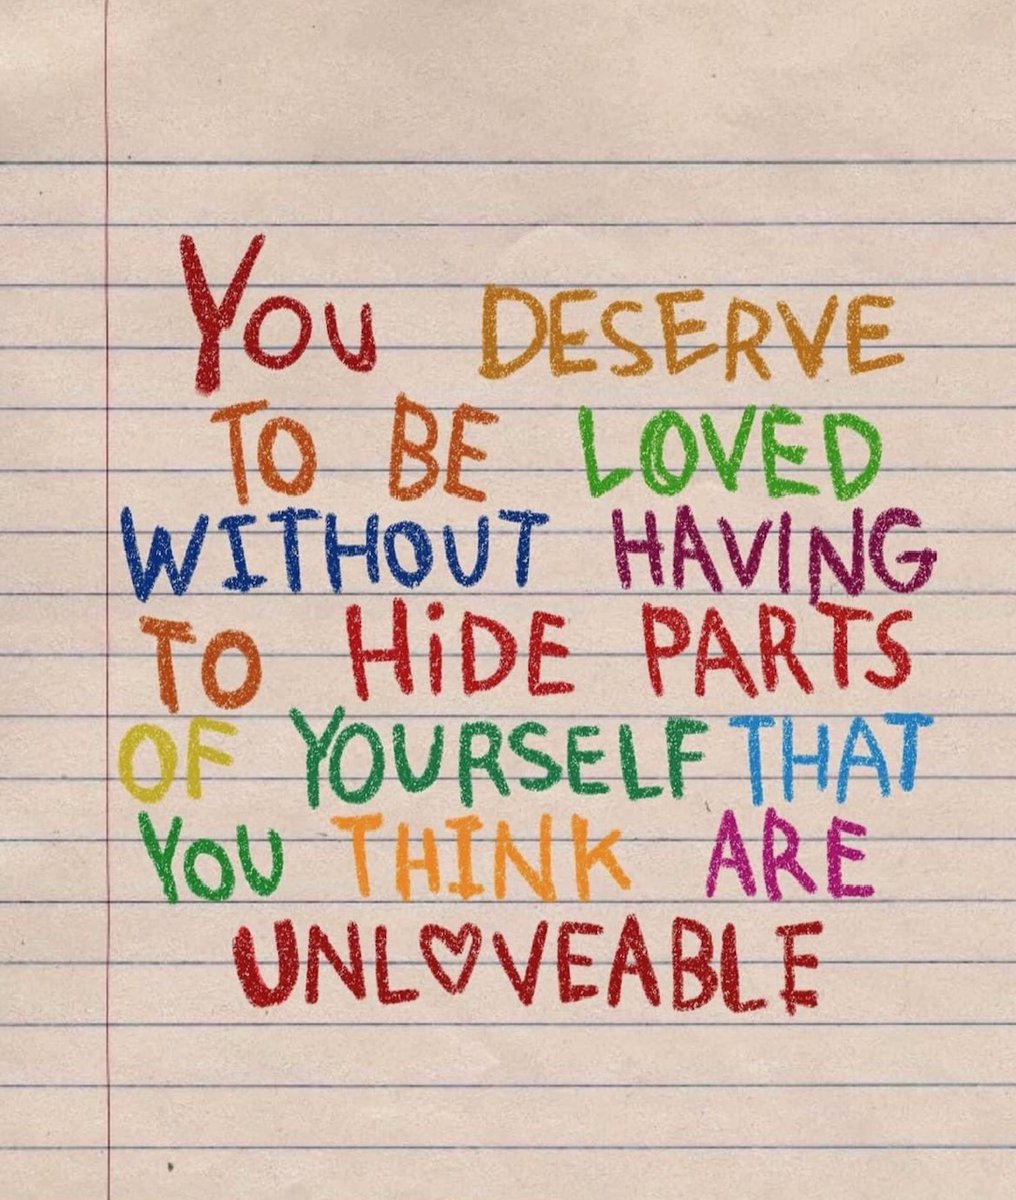 YOU DESERVE
TO BE LOVED
WITHOUT HAVING
TO HiDE PARTS
OF YOURSELF THAT
YOU THINK ARE
UNL♡VEABLE